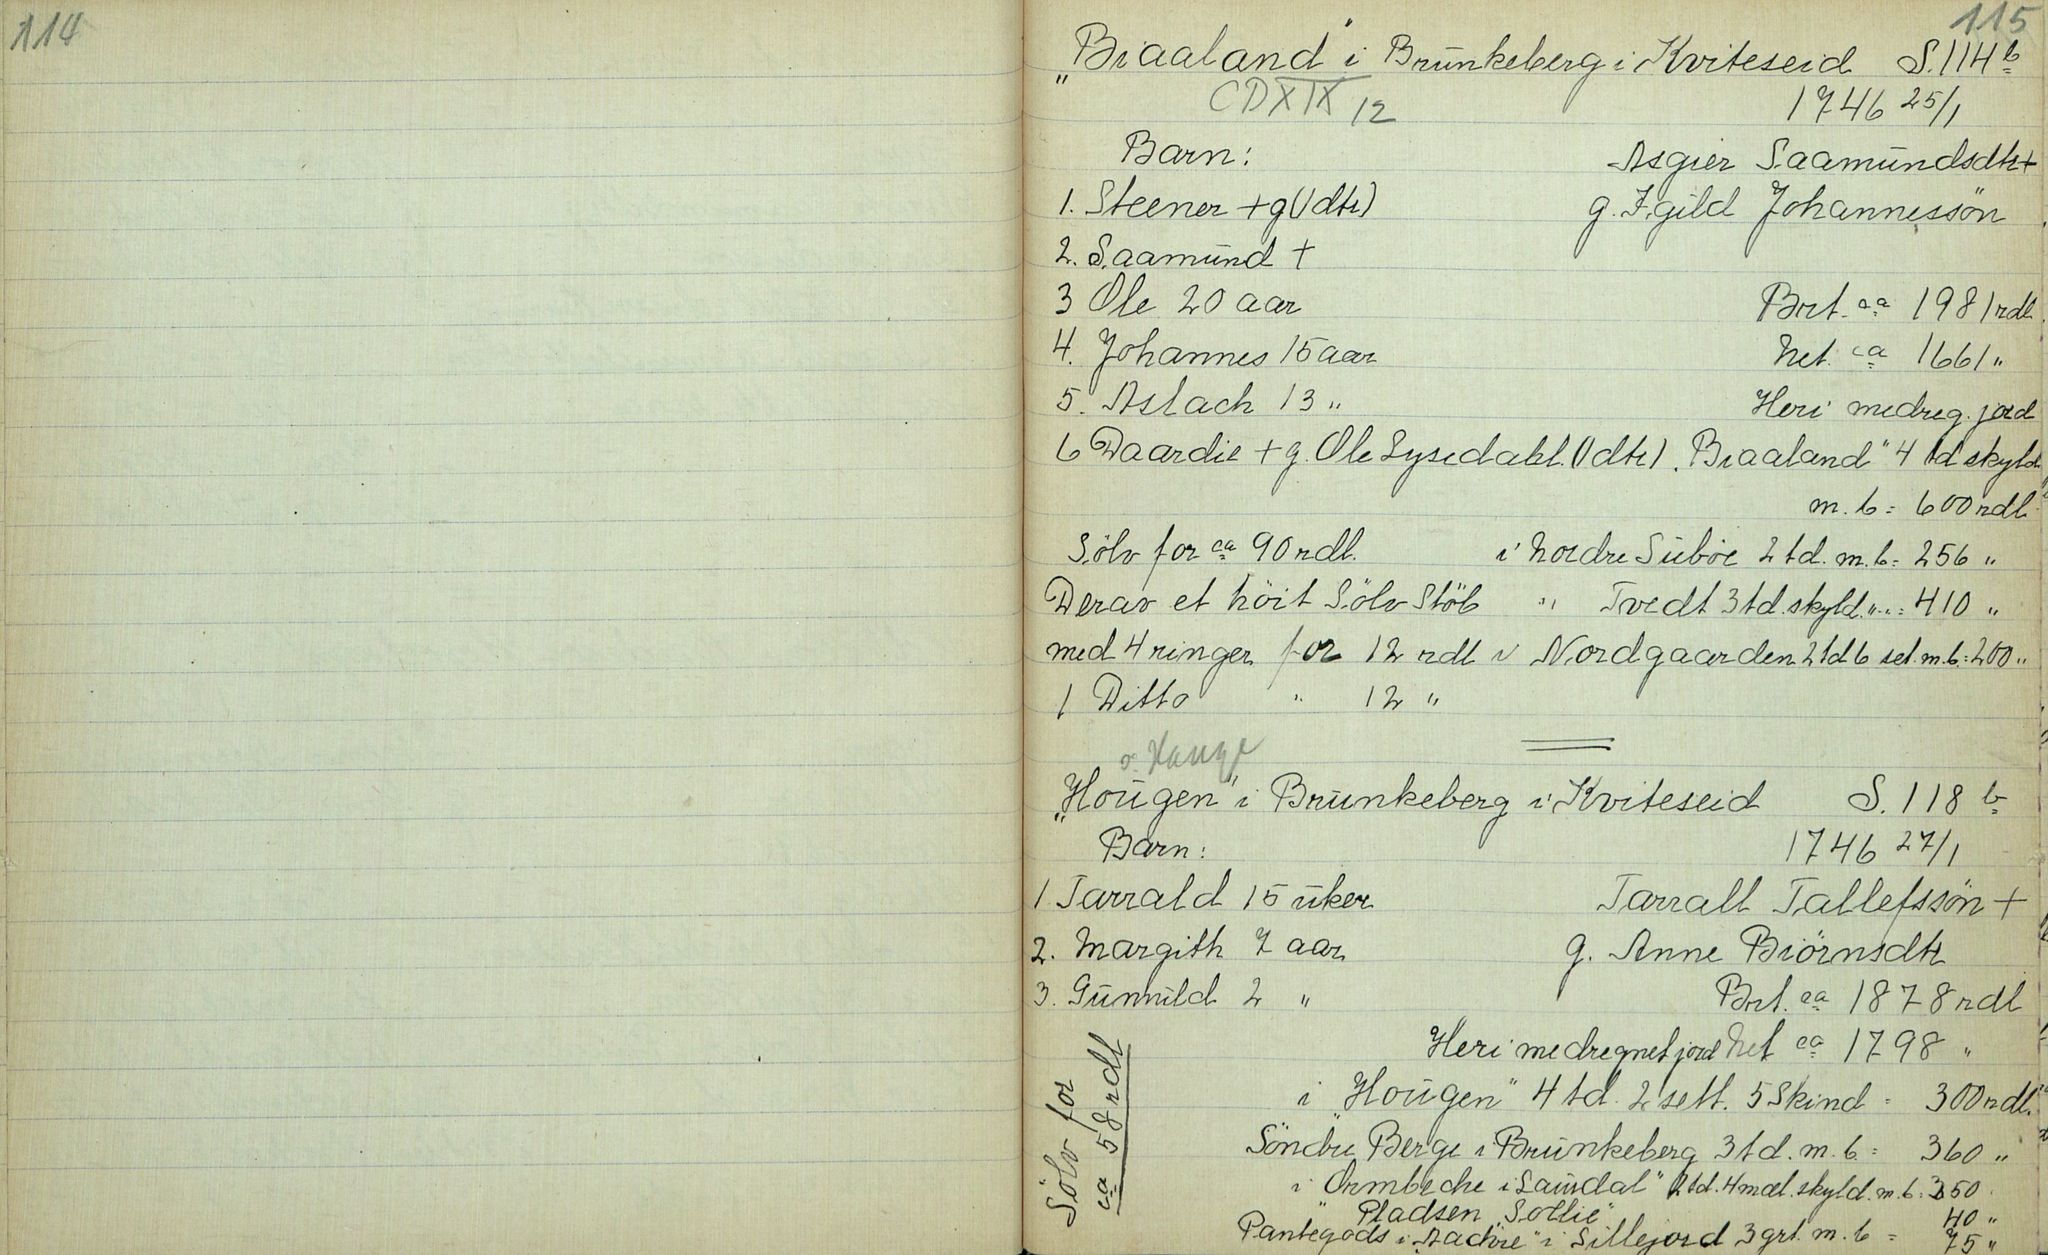 114
115
"Biaaland" i Brunkeberg i Kviteseid S. 114 b
CDXIX 12
1746 25/1
Barn: Asgier Saamundsdtr +
1. Steener + g (1 dtr) g. Egild Johannessön
2. Saamund +
3 Ole 20 aar Brt. ca 1981 rdl.
4. Johannes 15 aar Net. ca 1661 "
5. Aslach 13 " Heri medreg. jord
6 Daardie + g. Ole Lysedahl. (1 dtr) "Biaaland" 4 td skyld
m. b = 600 rdl.
Sölv for ca 90 rdl. i Nordre Suböe 2 td. m. b = 256 "
Derav et höit Sölv Stöb " Tvedt 3 td. skyld. " .. = 410 "
med 4 ringer for 12 rdl i Nordgaarden 2 td 6 set. m. b. = 200 "
1 Ditto " 12 "
o. Hauge
"Hougen" i Brunkeberg i Kviteseid S. 118 b
Barn: 1746 27/1
1 Tarrald 15 uker Tarrall Tallefssön +
2. Margith 7 aar g. Anne Biörnsdtr
3. Gunnild 2 " Brt. ca 1878 rdl
Heri medregnet jord Net ca 1798 "
i "Hougen" 4 td. 2 sett. 5 Skind = 300 rdl.
Söndre Berge i Brunkeberg 3 td. m. b = 360 "
i "Ormbreche i Saudal" 2 td. 4 mæl. skyld. m. b = 350.
"Pladsen Sollie" 40 "
Pantegods i "Aachre" i Sillejord 3 grt. m. b = 75 "
Sölv for
ca 58 rdl